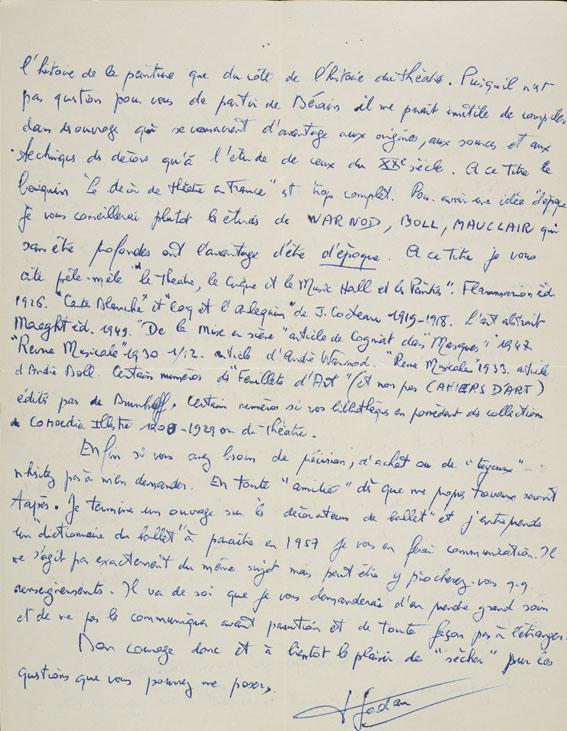 l'histoire de la peinture que du côté de l'histoire du théâtre. Puisqu'il n'est
pas question pour vous de partir de Bérain il me parait inutile de compiler
dans ouvrage qui se consacrent d'avantage aux origines, aux sources et aux
techniques du décors qu'à l'étude de ceux du XXe siècle. A ce titre le
bouquin "Le décor de théâtre en France" est trop complet. Pour avoir une idée d'époque
je vous conseillerai plutôt les études de WARNOD, BOLL, MAUCLAIR qui
sans être profondes ont l'avantage d'être d'époque. A ce titre je vous
cite pêle-mêle "le Theatre, le Cirque et le Music Hall et les Peintres". Flammarion éd.
1926. "Carte Blanche" et "Coq et l'arlequin" de J. Cocteau 1919-1918. L'art abstrait
Maeght éd. 1949. "De la mise en scène" article de Cogniat dans "Masques" 1947.
"Revue Musicale" 1930 1/12. article d'André Warnod. "Revue Musicale" 1933. article
d'André Boll. Certains numéros de "Feuillets d'Art" (et non pas CAHIERS D'ART)
édités par de Brunhoff. Certains numéros si vos bibliothèques en possèdent des collections
de Comoedia Illustré -1929 ou de théâtre.
Enfin si vous avez besoin de précision, d'achat ou de "tuyaux"
n'hésitez pas à m'en demander. En toute "amitié" dès que mes propres travaux seront
tapés. Je termine un ouvrage sur "les décorateurs de ballet" et j'entreprends
un "dictionnaire du ballet" à paraître en 1957 je vous en ferai communication. Il
ne s'agit pas exactement du même sujet mais peut être y piocherez-vous q.q.
renseignements. Il va de soi que je vous demanderais d'en prendre grand soin
et de ne pas le communiquer avant parution et de toute façon pas à l'étranger.
Bon courage donc et à bientôt le plaisir de "sécher" pour les
questions que vous pourrez me poser.